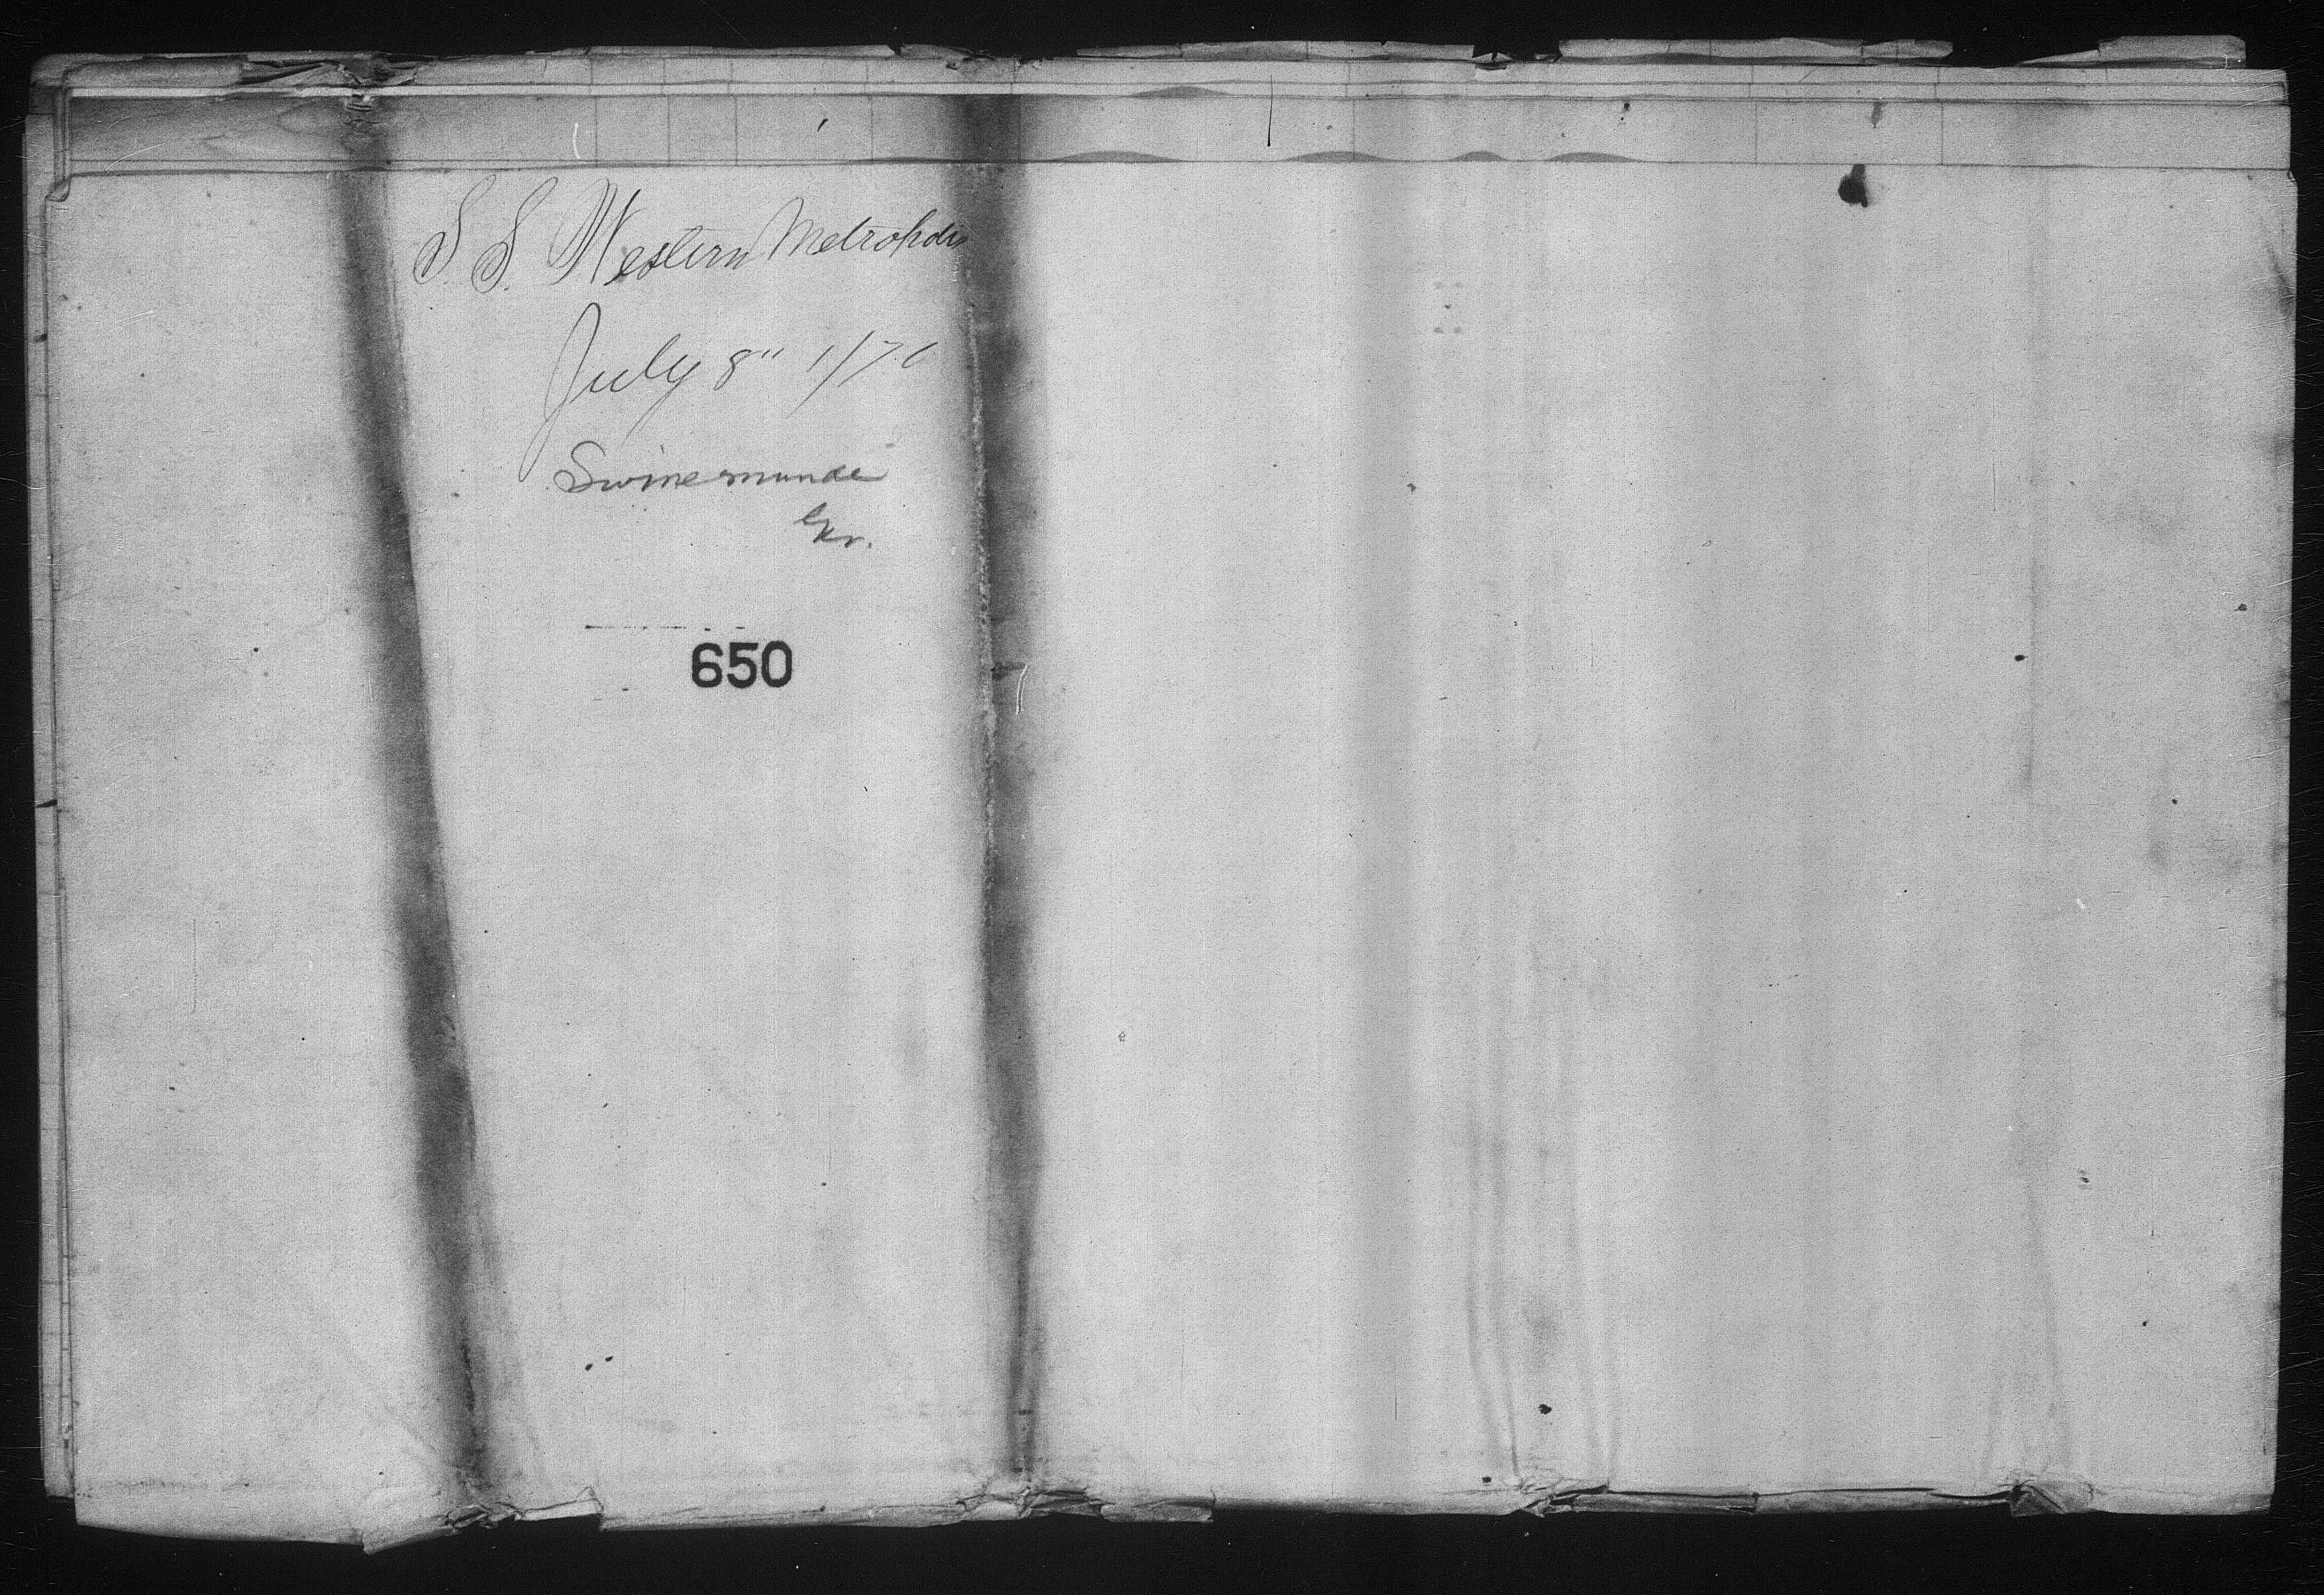 S. S. Western Metropolis
July 8" 1/70
Swinemunde
650